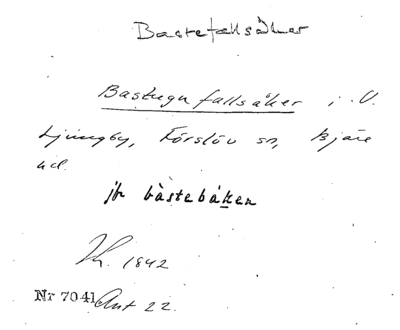 Bastefallsåker
Bastugu fallsåker i V.
Ljungby, Förslöv sn, Bjäre
hd.
jfr bàstebáken
1842
Nr 7041 Ant 22.